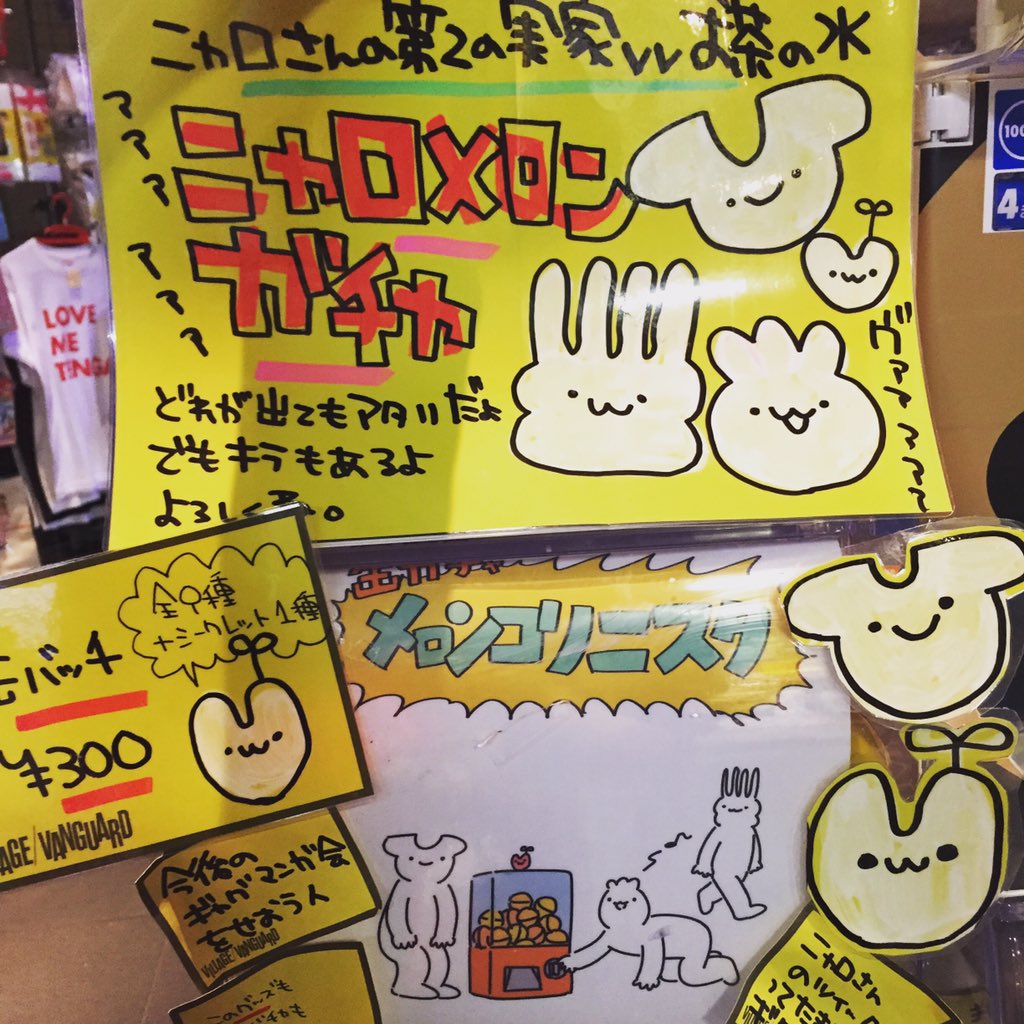 ニャロさんの第2の実家vvお茶の水
アアア
ニャロメロン
ガチャ
アアアア
どれが出てもアタリだよ
でもキラもあるよ
よろしくね。
ヴァァァァァ
LOVE
ME
TENGA
100
4
全9種
+シークレット1種
缶バッチ
¥300
VILLAGE/VANGUARD
缶ガチャ
メロンコリニスタ
今後の
ギャグマンガ会
をせおう人
VILLAGE/VANGUARD
このグッズも
ニャロさん
のルイ
ってた